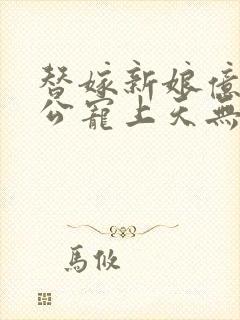 替嫁新娘億
公寵上天無
馬攸